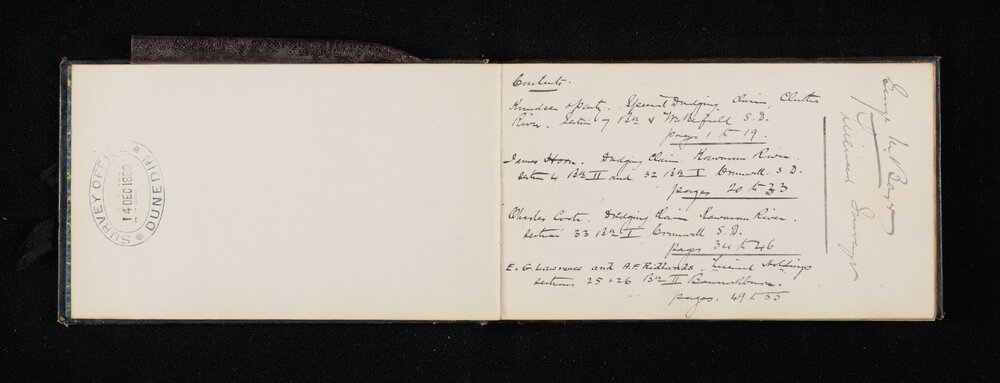 SURVEY OFFICE
14 DEC 1889
* DUNEDIN *
Contents.
Knudsen & party. Special Dredging Claim, Clutha
River. Section 7 Blk V Wakefield S.D.
pages 1 to 19.
James Horn. Dredging Claim Kawarau River.
section 4 Blk II and 32 Blk I Cromwell S.D.
pages 20 to 33
Charles Coote. Dredging Claim Kawarau River.
section 33 Blk I Cromwell S.D.
pages 34 to 46
E. G. Lawrence and A.F. Ridlands. Mineral Holdings
sections 25 & 26 Blk II Bannockburn.
pages. 49 to 55
George
Surveyor